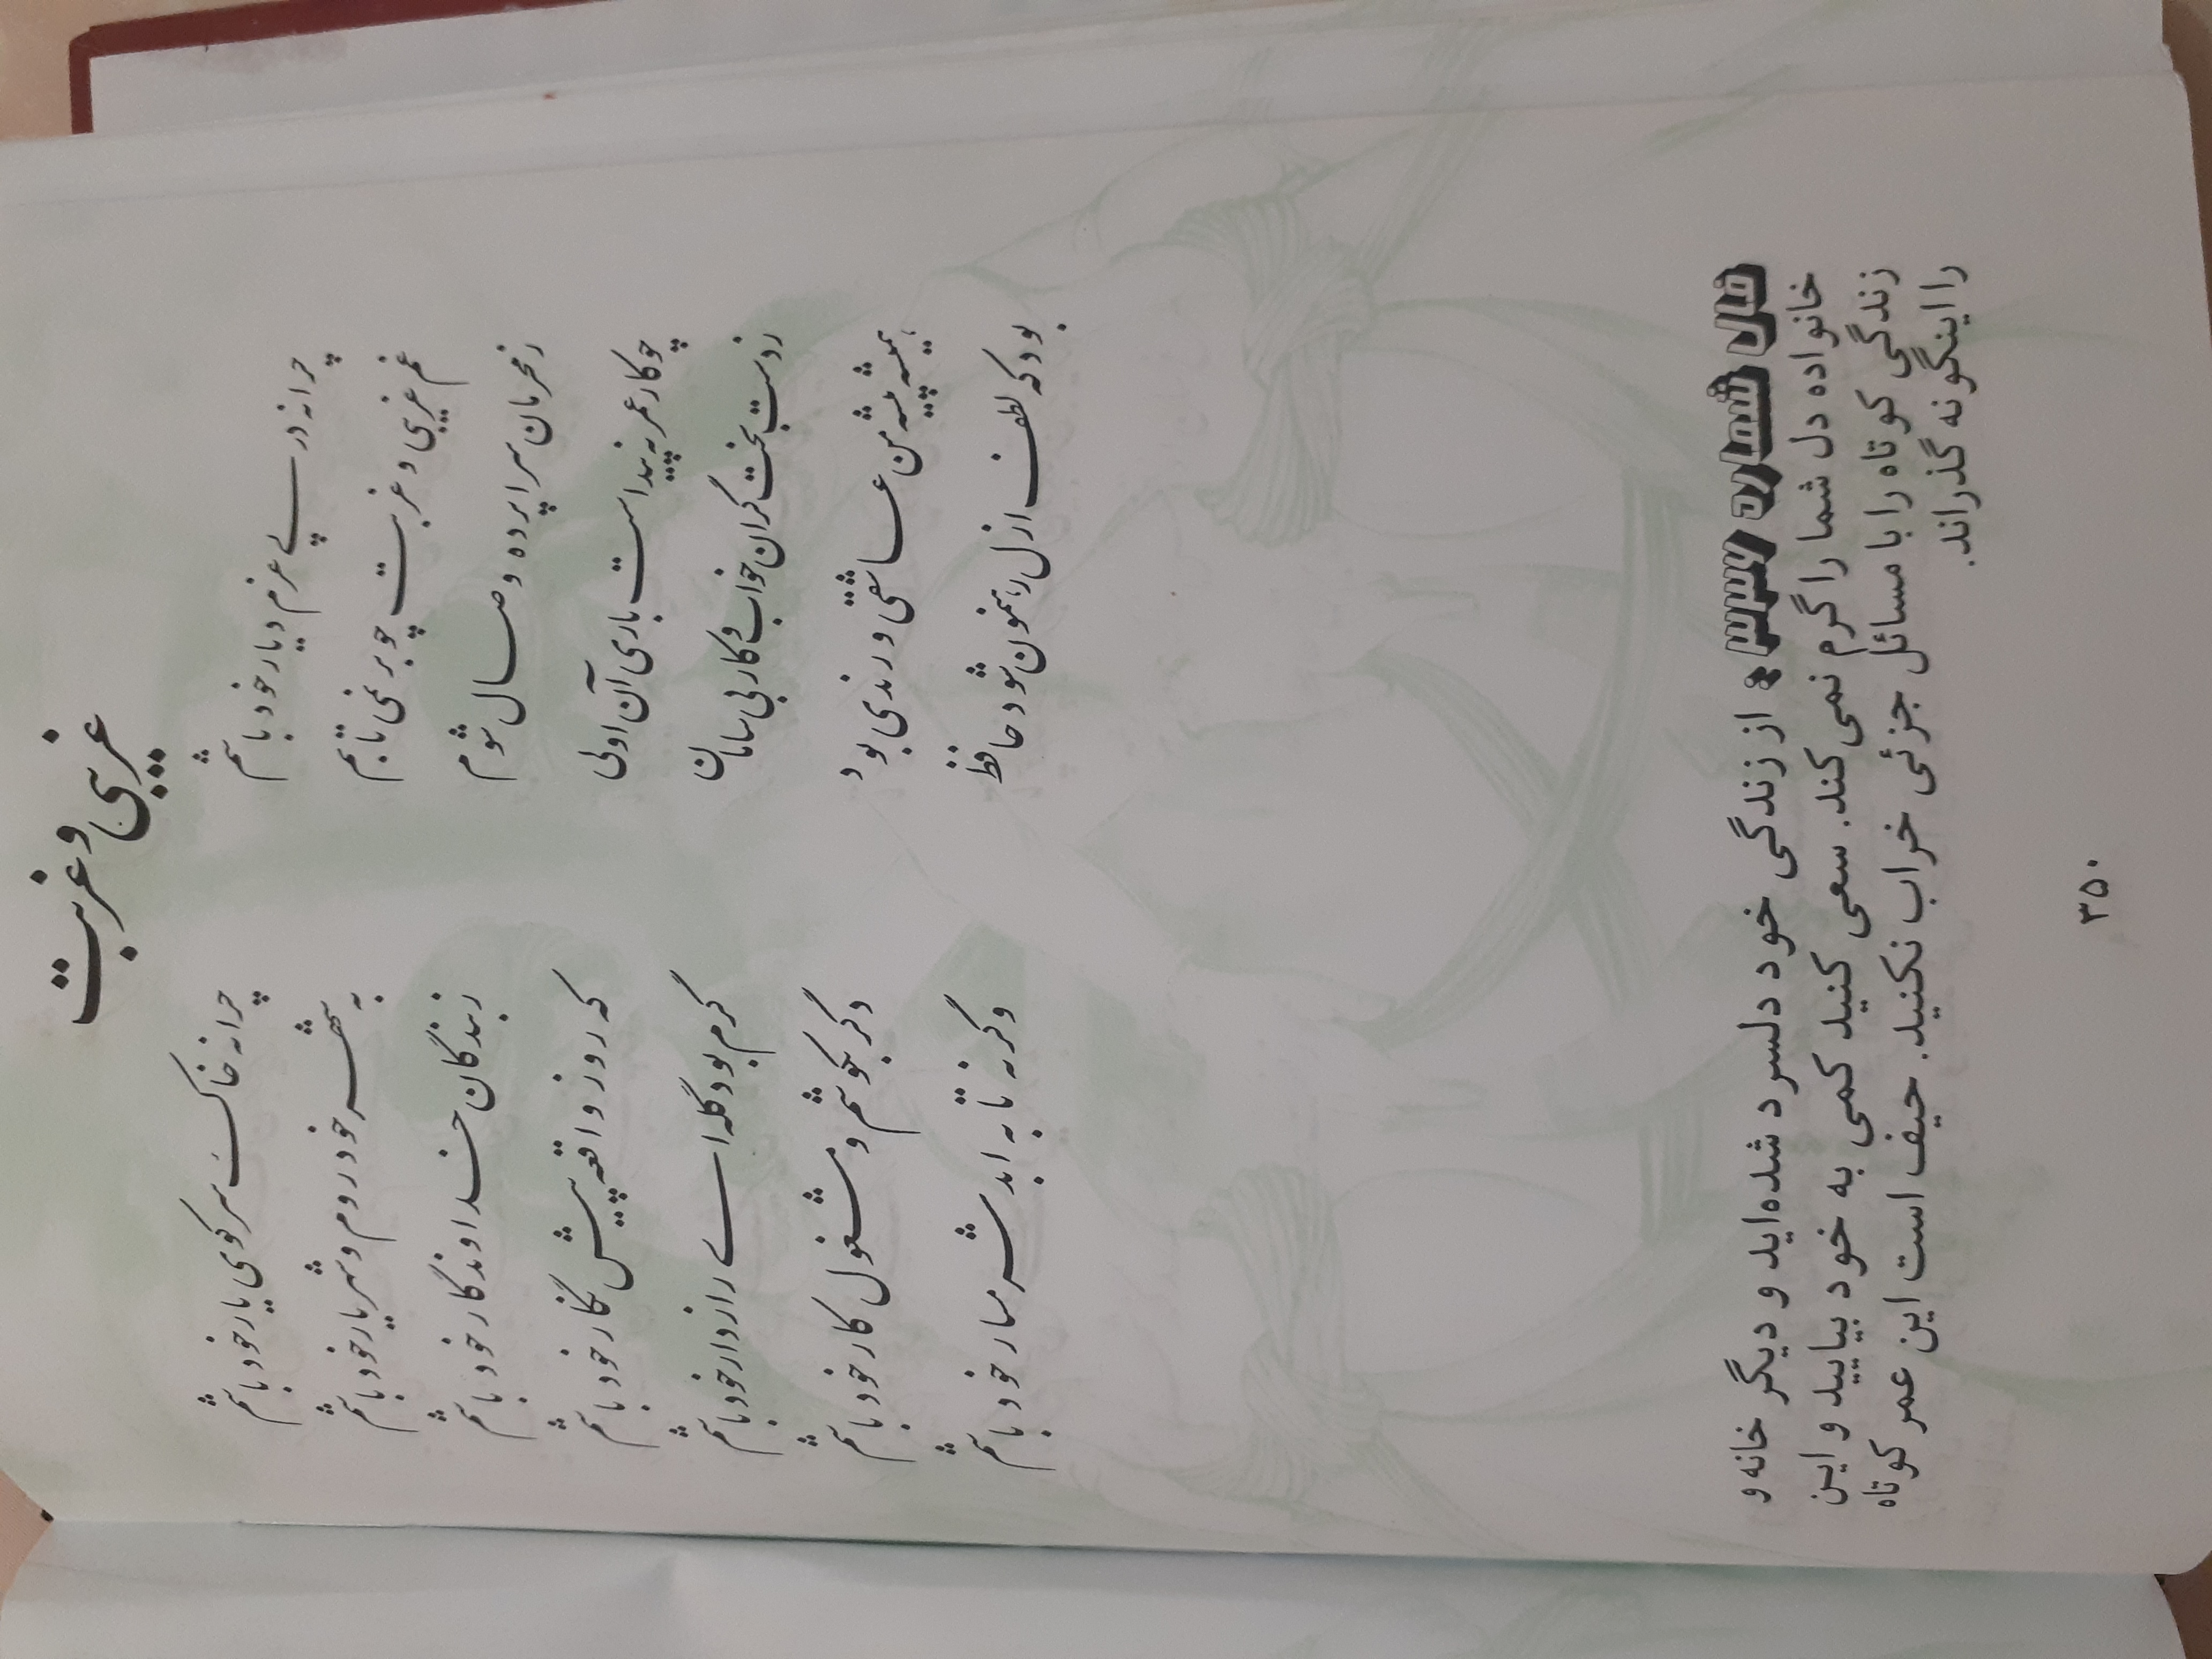 غریبی و غربت
چرا نه در پی عزم دیار خود باشم
چرا نه خاک سر کوی یار خود باشم
غم غریبی و غربت چو بر نمی تابم
به شهر خود روم و شهریار خود باشم
ز محرمان سراپرده وصال شوم
ز بندگان خداوندگار خود باشم
چو کار عمر نه پیداست باری آن اولی
که روز واقعه پیش نگار خود باشم
ز دست بخت گران خواب و کار بی سامان
گرم بود گله ای رازدار خود باشم
همیشه پیشه من عاشقی و رندی بود
دگر بکوشم و مشغول کار خود باشم
بود که لطف ازل رهنمون شود حافظ
وگرنه تا به ابد شرمسار خود باشم
از زندگی خود دلسرد شده‌اید و دیگر خانه و
خانواده دل شما را گرم نمی‌کند. سعی کنید کمی به خود بیایید و این
زندگی کوتاه را با مسائل جزئی خراب نکنید. حیف است این عمر کوتاه
را اینگونه گذراند.
۳۵۰